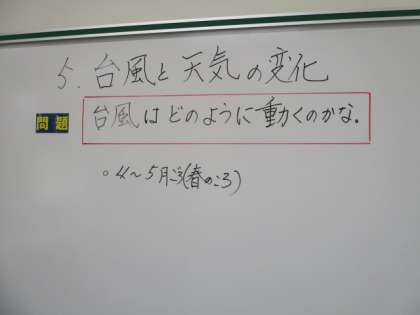 5. 台風と天気の変化
問題 台風はどのように動くのかな.
○ 4〜5月ごろ(春のころ)